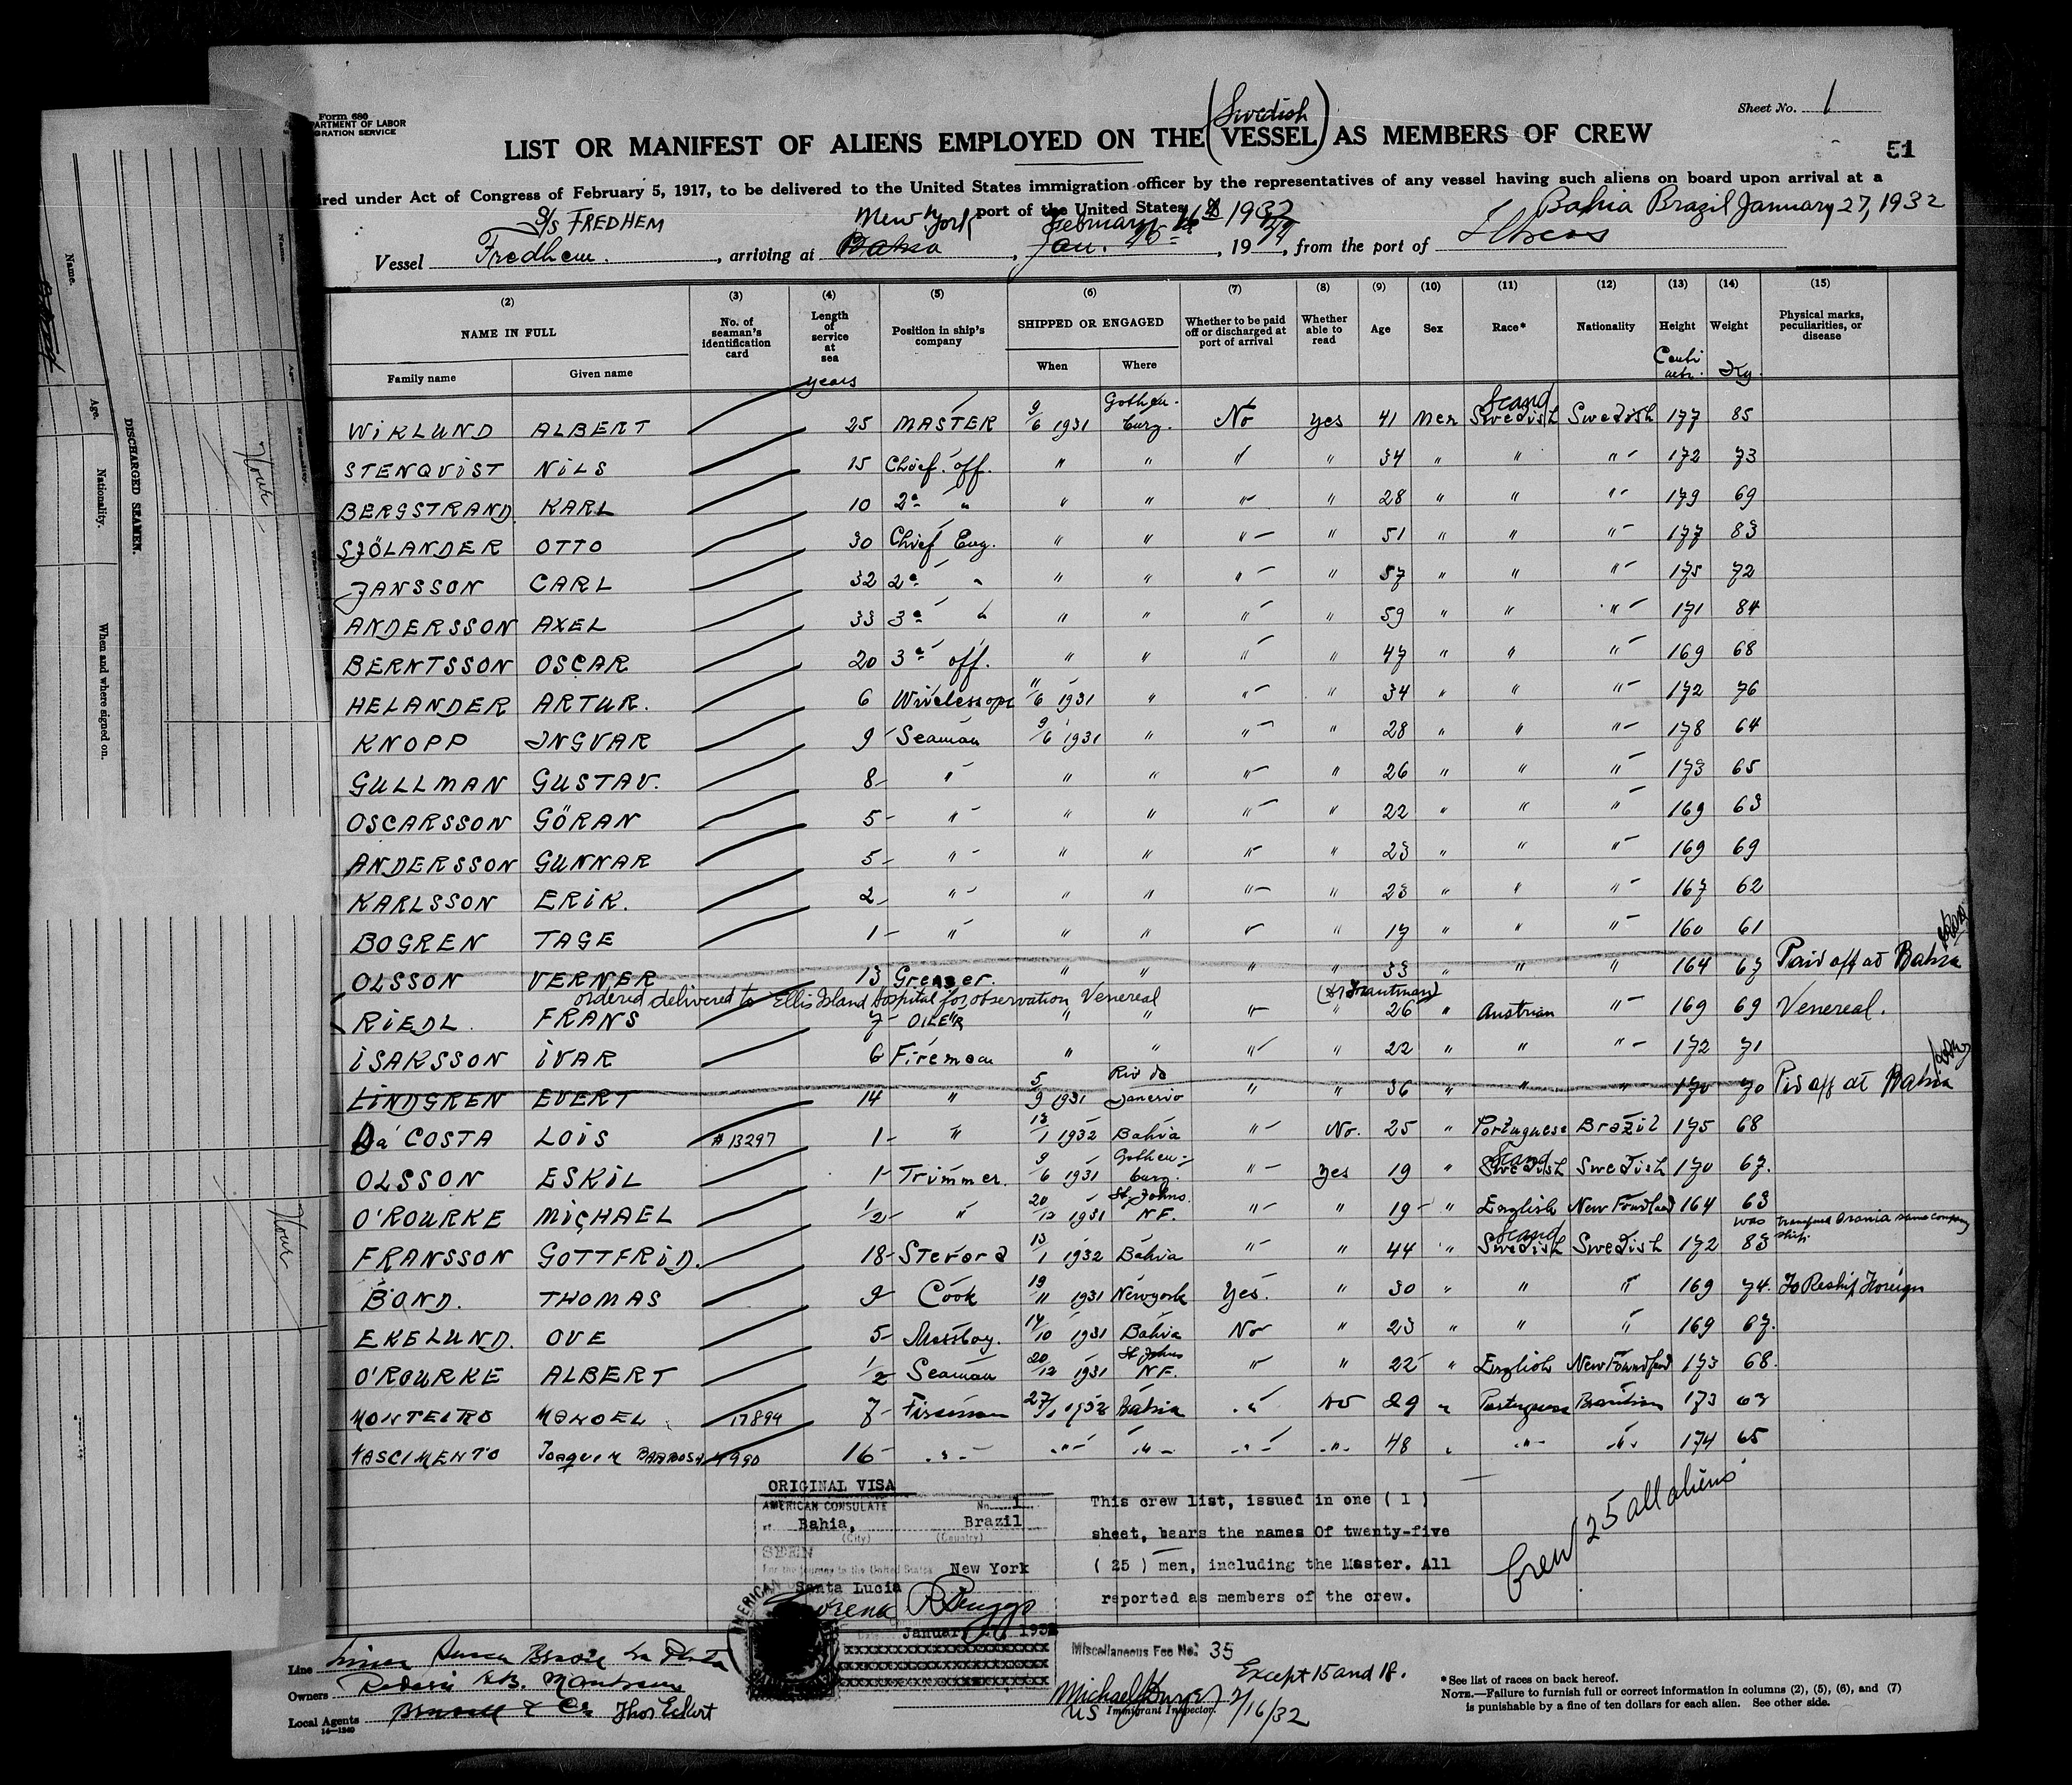 Form 680
DEPARTMENT OF LABOR
IMMIGRATION SERVICE
Sheet No. 1
51
(Swedish)
LIST OR MANIFEST OF ALIENS EMPLOYED ON THE (VESSEL) AS MEMBERS OF CREW
ired under Act of Congress of February 5, 1917, to be delivered to the United States immigration officer by the representatives of any vessel having such aliens on board upon arrival at a
port of the United States
S/S FREDHEM New York February 16th 1932 Bahia Brazil January 27, 1932
Vessel Fredhem., arriving at Bahia, Jan. 19, from the port of
(2) (3) (4) (5) (6) (7) (8) (9) (10) (11) (12) (13) (14) (15)
NAME IN FULL No. of seaman's identification card Length of service at sea Position in ship's company SHIPPED OR ENGAGED Whether to be paid off or discharged at port of arrival Whether able to read Age Sex Race* Nationality Height Weight Physical marks, peculiarities, or disease
Family name Given name years When Where Kg.
WIKLUND ALBERT 25 MASTER 9/6 1931 Gothenburg. No yes 41 Men Scand Swedish Swedish 177 85
STENQVIST NILS 15 Chief. off. " " " " 34 " " " 172 73
BERGSTRAND. KARL 10 2a " " " " " 28 " " " 179 69
SJÖLANDER OTTO 30 Chief Eng. " " " " 51 " " " 177 83
JANSSON CARL 32 2a " " " " " 57 " " " 175 72
ANDERSSON AXEL 33 3a " " " " " 59 " " " 171 84
BERNTSSON OSCAR 20 3a off. " " " " 47 " " " 169 68
HELANDER ARTUR. 6 Wirelessope 11/6 1931 " " " 34 " " " 172 76
KNOPP INGVAR 9 Seaman 9/6 1931 " " " 28 " " " 178 64
GULLMAN GUSTAV. 8 " " " " " 26 " " " 173 65
OSCARSSON GÖRAN 5 " " " " " 22 " " " 169 63
ANDERSSON GUNNAR 5 " " " " " 23 " " " 169 69
KARLSSON ERIK. 2 " " " " " 23 " " " 167 62
BOGREN TAGE 1 " " " " " 17 " " " 160 61
OLSSON VERNER 13 Greaser. " " " " 33 " " " 164 67 Paid off at Bahia
ordered delivered to Ellis Island Hospital for observation Venereal
RIEDL. FRANS 7 OILER " " " " 26 " Austrian " 169 69 Venereal.
ISAKSSON IVAR 6 Fireman " " " " 22 " " " 172 71
LINDGREN EVERT 14 " 5/9 1931 Rio de Janeiro " " 36 " " " 170 70 Pid off at Bahia
Da COSTA LOIS # 13297 1 " 13/1 1932 Bahia " No. 25 " Portuguese Brazil 175 68
OLSSON ESKIL 1 Trimmer. 9/6 1931 Gothenburg. " yes 19 " Scand Swedish Swedish 170 67.
O'ROURKE MICHAEL 1/2 " 20/12 1931 St. Johns. NF. " " 19 " English New Foundland 164 63
FRANSSON GOTTFRID. 18 Stevard 13/1 1932 Bahia " " 44 " Scand Swedish Swedish 172 83 was transfered Orania same company ship.
BOND. THOMAS 9 Cook 19/11 1931 Newyork Yes. " 30 " " " 169 74. To Reship Foreign
EKELUND. OVE 5 Messboy. 14/10 1931 Bahia No " 23 " " " 169 67.
O'ROURKE ALBERT 1/2 Seaman 20/12 1931 St Johns NF. " " 22 " English New Foundland 173 68.
MONTEIRO MANOEL 17894 7 Fireman 27/1 1932 Bahia " no 29 " Portuguese Brazilian 173 63
NASCIMENTO Joaquim BARBOSA 4990 16 " " " " " 48 " " " 174 65
ORIGINAL VISA
AMERICAN CONSULATE No. 1
at Bahia, Brazil
(City) (Country)
SEEN
For the journey to the United States New York
Santa Lucia
AMERICAN
January 27 1932
This crew list, issued in one ( 1 )
sheet, bears the names Of twenty-five
( 25 ) men, including the Master. All
reported as members of the crew.
Crew 25 all aliens
Miscellaneous Fee No. 35
Except 15 and 18.
US Immigrant Inspector. 2/16/32
Line
Owners
Local Agents Thor Eckert
14-1240
*See list of races on back hereof.
NOTE.—Failure to furnish full or correct information in columns (2), (5), (6), and (7)
is punishable by a fine of ten dollars for each alien. See other side.
DISCHARGED SEAMEN.
Name. Age. Nationality. When and where signed on.